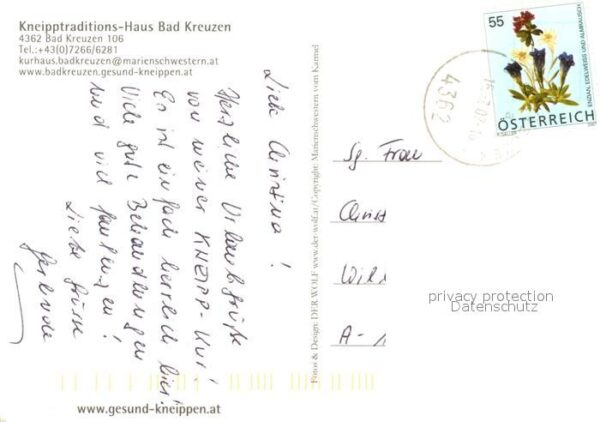 Kneipptraditions-Haus Bad Kreuzen
4362 Bad Kreuzen 106
Tel.:+43(0)7266/6281
kurhaus.badkreuzen@marienschwestern.at
www.badkreuzen.gesund-kneippen.at
Liebe Christina!
Herzliche Urlaubsgrüße
von meiner KNEIPP-Kur!
Es ist einfach herrlich hier!
Viele gute Behandlungen
und viel
Liebe Grüsse
Gerlinde
www.gesund-kneippen.at
Fotos & Design: DER WOLF www.der-wolf.at/Copyright: Marienschwestern vom Karmel
55
ENZIAN, EDELWEISS UND ALMRAUSCH
ÖSTERREICH
4362
Sg. Frau
Christ
Wil
A-1
privacy protection
Datenschutz